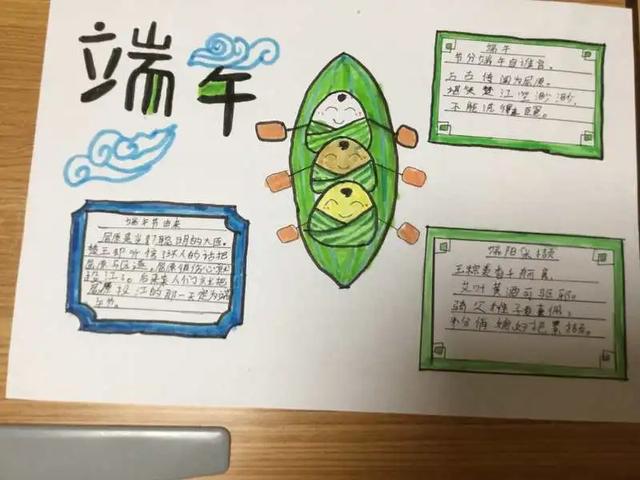 端午
端午
节分端午自谁言，
万古传闻为屈原。
堪笑楚江空渺渺，
不能洗得直臣冤。
端午节由来
屈原是当时聪明的大臣。
楚王却听信坏人的话把
屈原
江。后来人们就把
屈原投江的那一天定为端
午节
端阳采撷
玉粽袭香千舸竞，
艾叶黄酒可驱邪。
骑父稚子香囊佩，
粉俏媳妇把景撷。